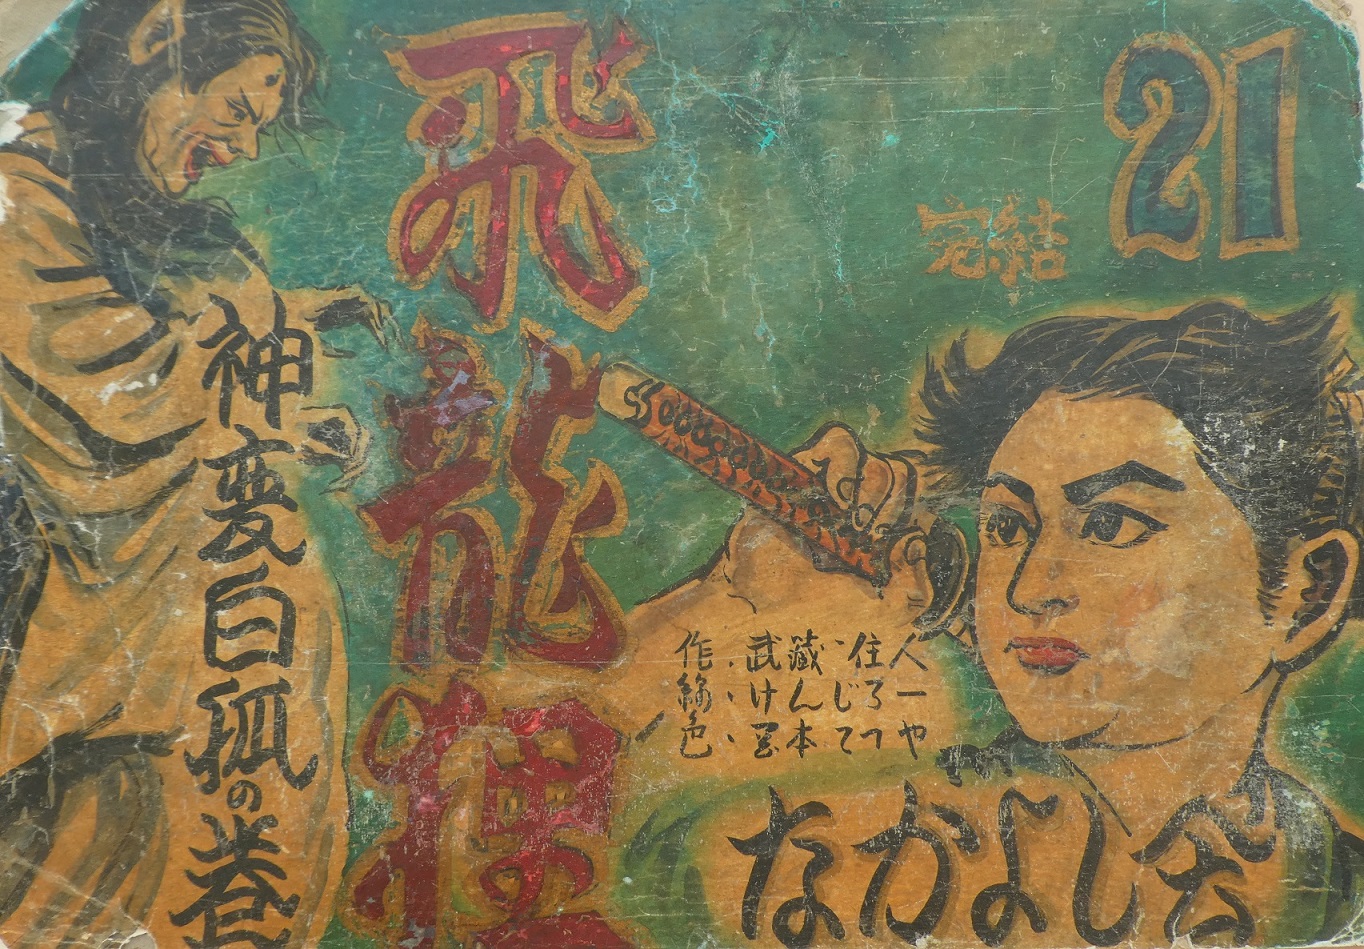 21
完結
飛龍狸
神変白狐の巻
作・武藏住人
繪・けんじろー
色・岡本てつや
なかよし会